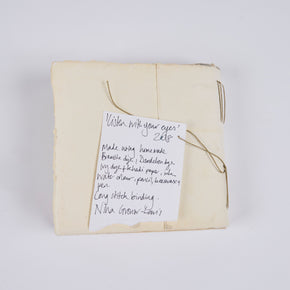 'Listen with your eyes'
2018
Made using homemade
Bramble dye, Dandelion dye,
Ivy dye & Khadi paper, ink
Water colour, pencil,
pen.
Long stitch binding.
Nina